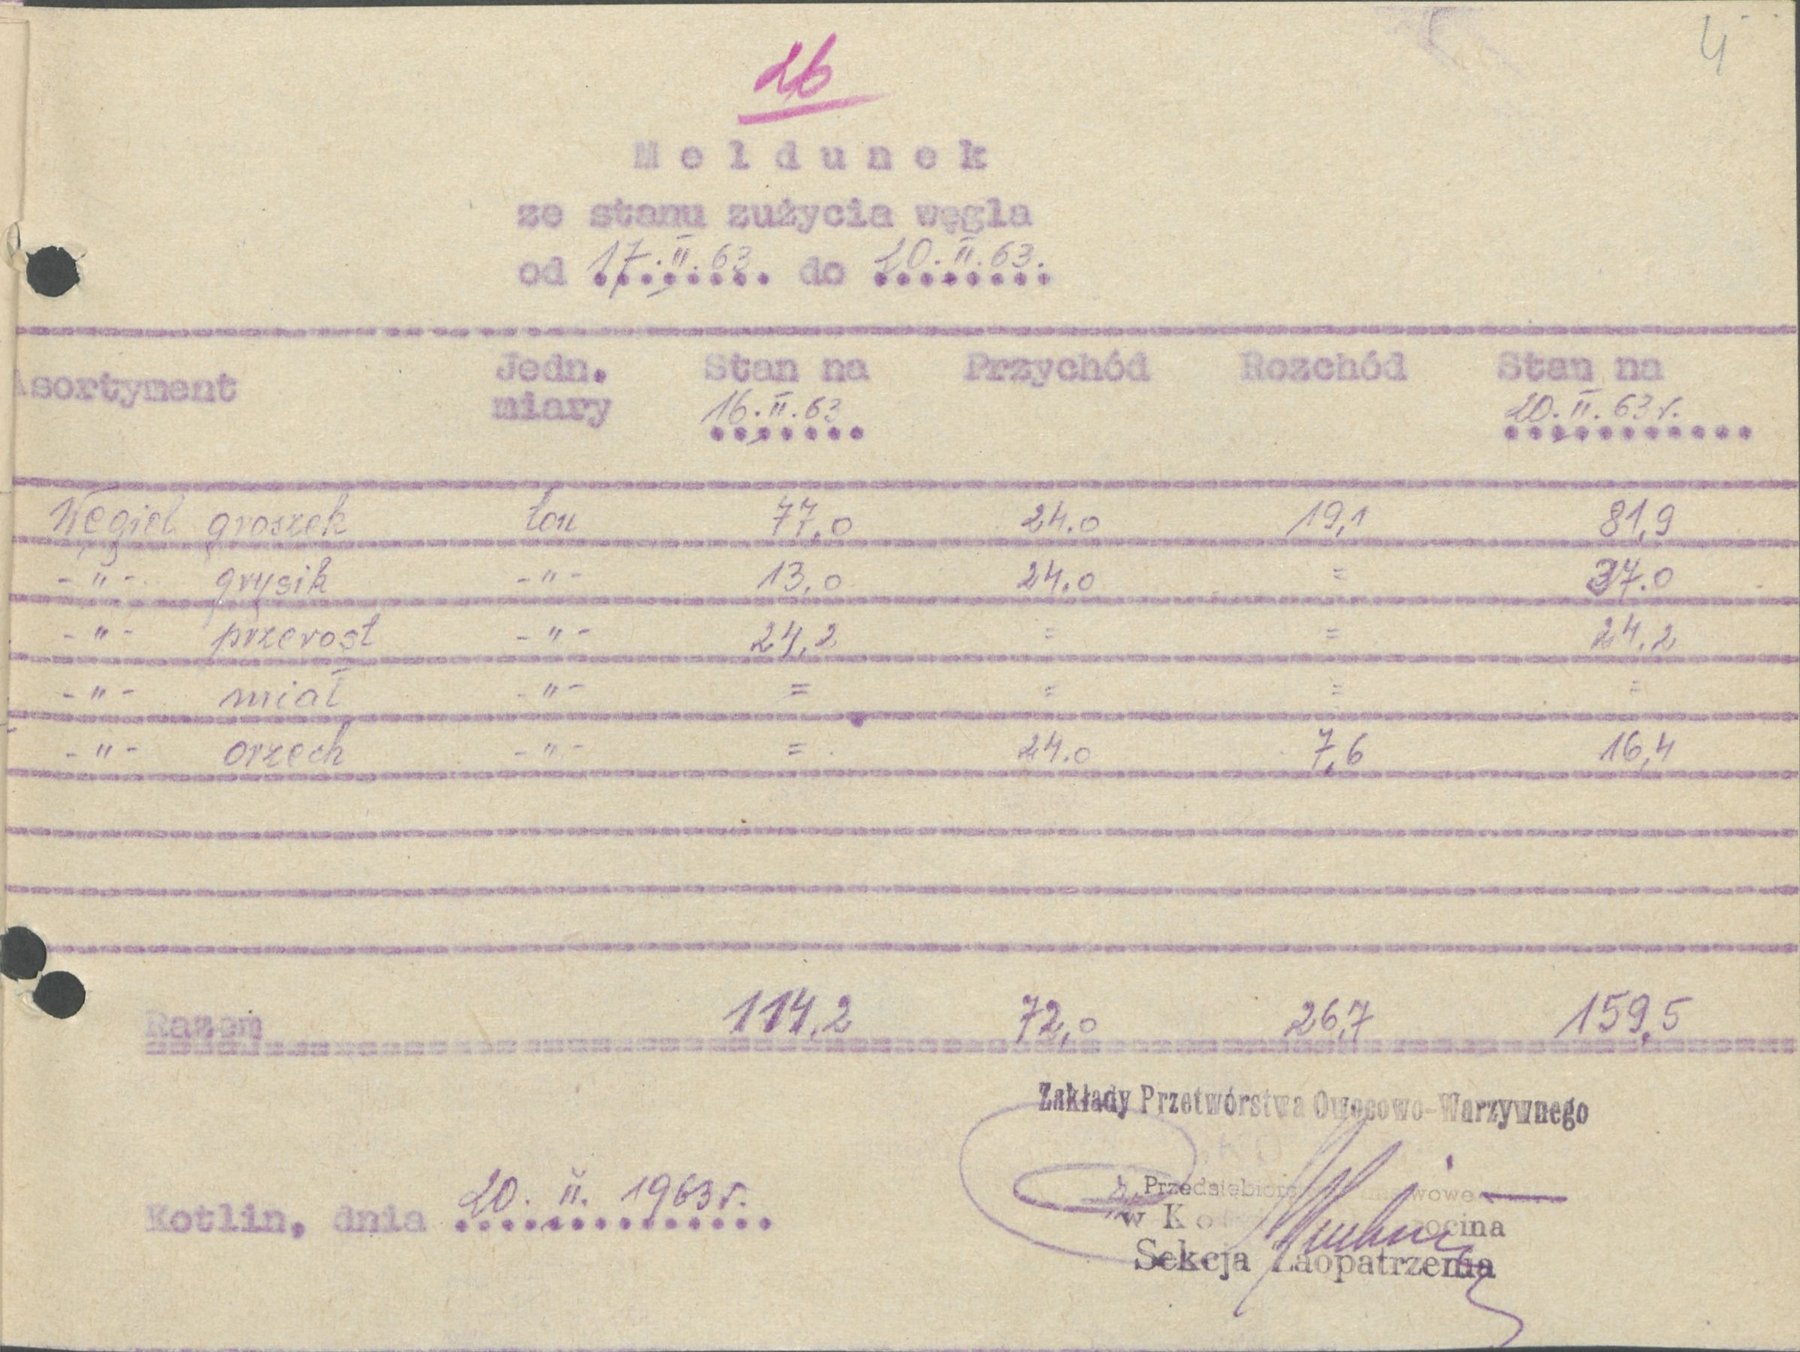 4
26
Meldunek
ze stanu zużycia węgla
od 17.II.63 do 20.II.63.
Asortyment Jedn. miary Stan na 16.II.63 Przychód Rozchód Stan na 20.II.63 r.
Węgiel groszek ton 77,0 24.0 19,1 81,9
-"- grysik -"- 13,0 24.0 = 37.0
-"- przerost -"- 24,2 = = 24,2
-"- miał -"- = = = =
-"- orzech -"- = 24.0 7,6 16,4
Razem 114,2 72,0 26,7 159,5
Zakłady Przetwórstwa Owocowo-Warzywnego
Kotlin, dnia 20. II. 1963 r.
Sekcja Zaopatrzenia